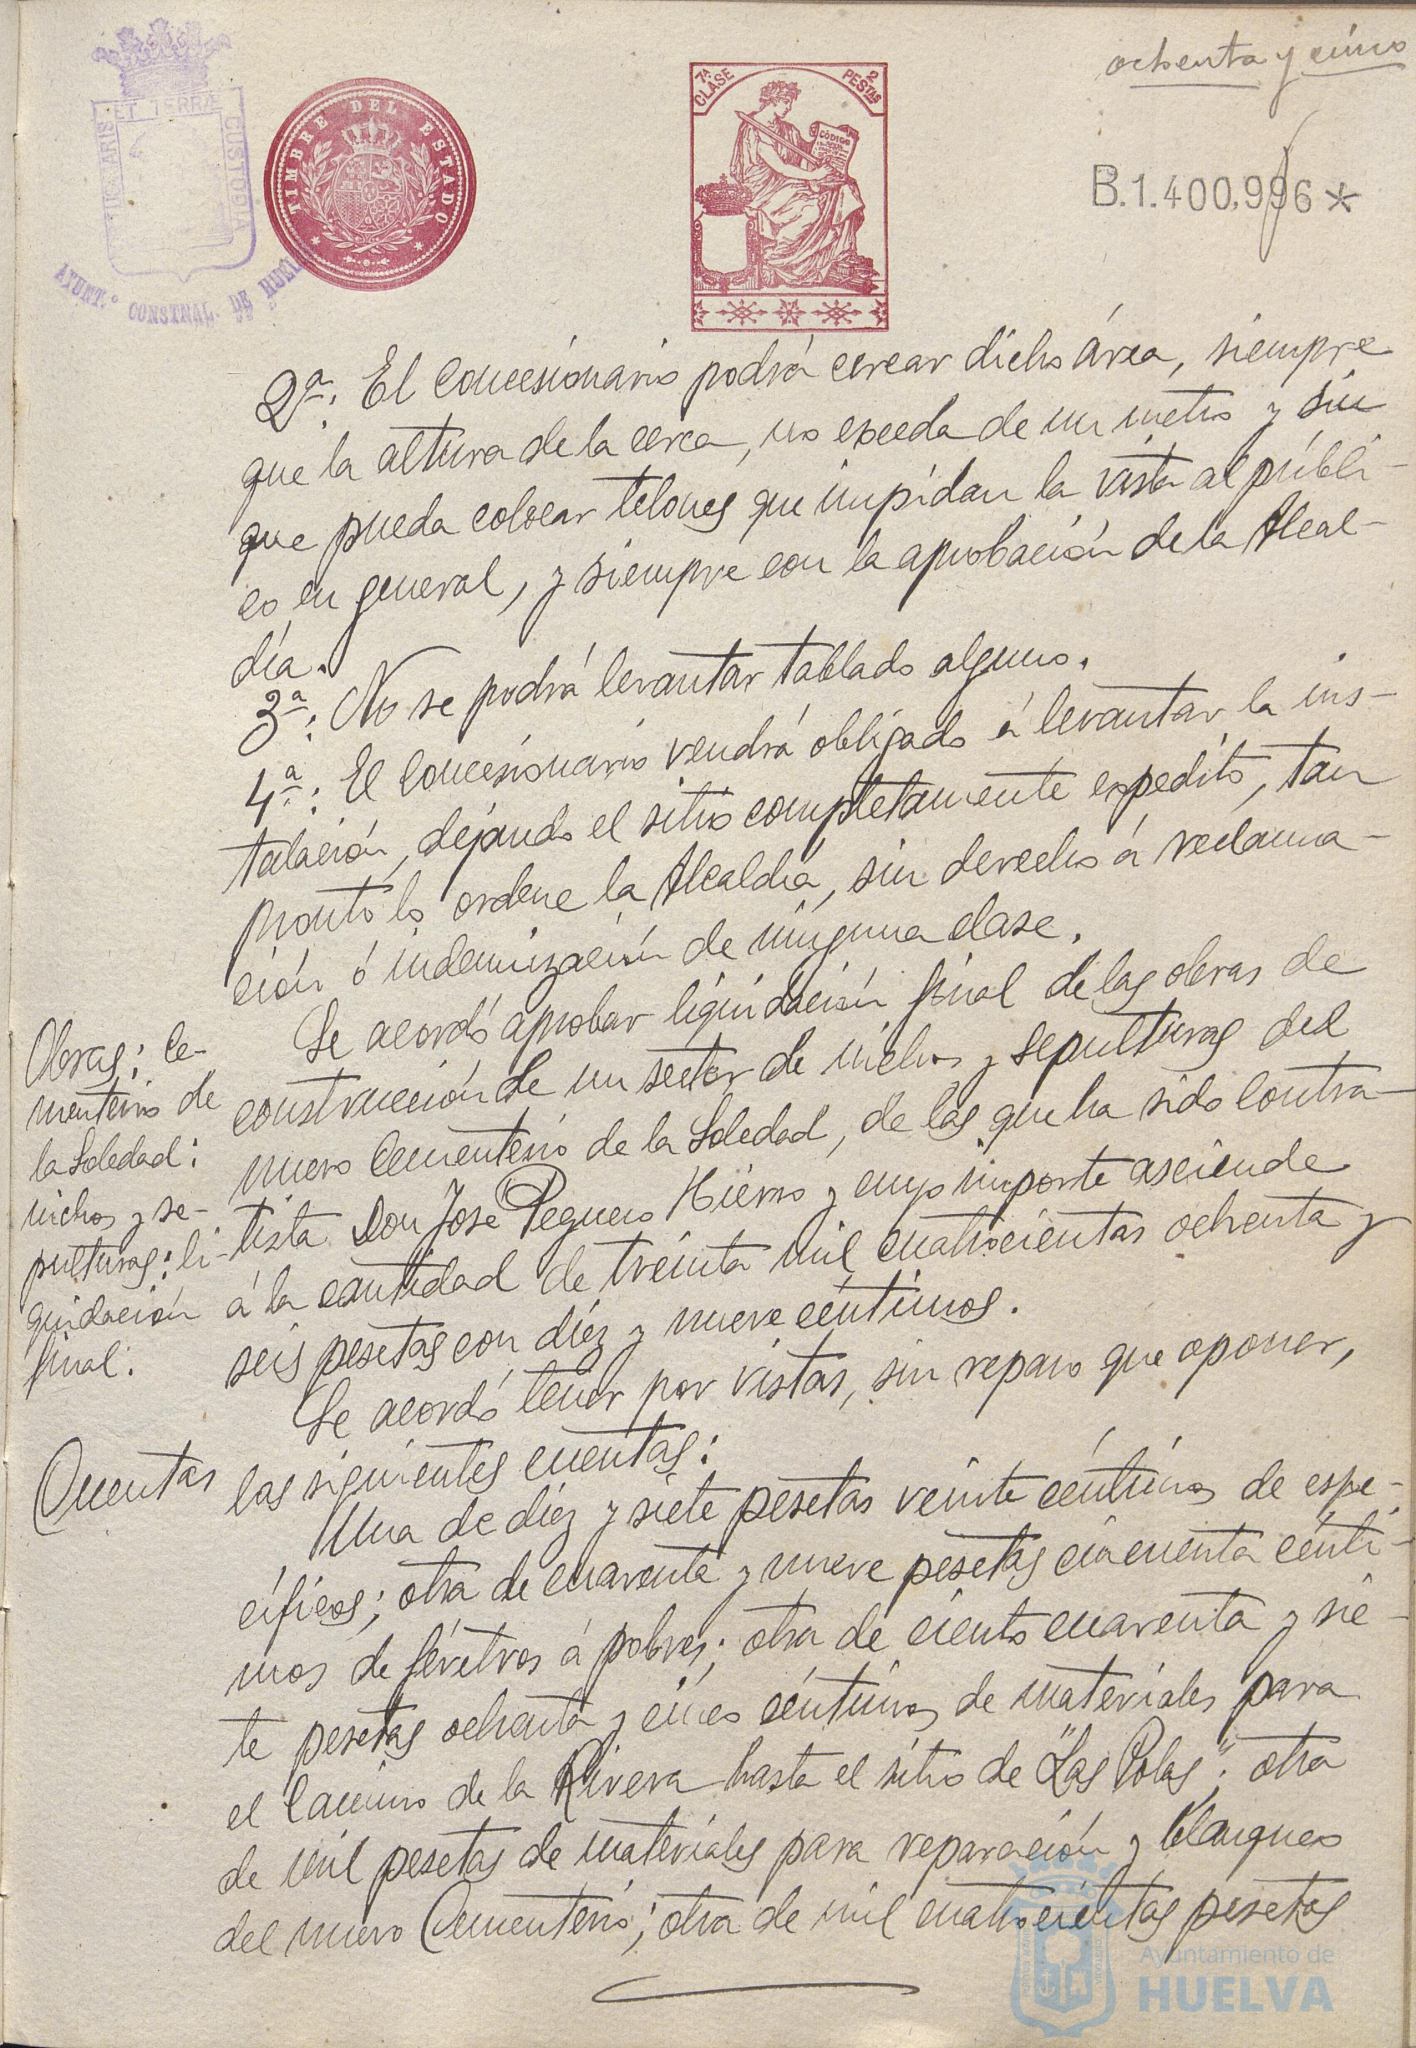 ochenta y cinco
PORTUS MARIS ET TERRÆ CUSTODIA
AYUNT.º CONSTNAL. DE HUELVA
TIMBRE DEL ESTADO
7ª CLASE
2 PESTAS
CÓDIGO
B.1.400.996*
2ª: El concesionario podrá cercar dicho área, siempre
que la altura de la cerca, no exceda de un metro y sin
que pueda colocar telones que impidan la vista al públi-
co en general, y siempre con la aprobación de la Alcal-
día.
3ª: No se podrá levantar tablado alguno.
4ª: El concesionario vendrá obligado á levantar la ins-
talación, dejando el sitio completamente expedito, tan
pronto lo ordene la Alcaldía, sin derecho á reclama-
ción ó indemnización de ninguna clase.
Obras: Ce-
menterio de
la Soledad:
nichos y se-
pulturas: li-
quidación
final.
Se acordó aprobar liquidación final de las obras de
construcción de un sector de nichos y sepulturas del
nuevo Cementerio de la Soledad, de las que ha sido contra-
tista Don José Peguero Hierro y cuyo importe asciende
á la cantidad de treinta mil cuatrocientas ochenta y
seis pesetas con diez y nueve céntimos.
Cuentas
Se acordó tener por vistas, sin reparo que oponer,
las siguientes cuentas:
Una de diez y siete pesetas veinte céntimos de espe-
cíficos; otra de cuarenta y nueve pesetas cincuenta cénti-
mos de féretros á pobres; otra de ciento cuarenta y sie-
te pesetas ochenta y cinco céntimos de materiales para
el Camino de la Rivera hasta el sitio de "Las Polas"; otra
de mil pesetas de materiales para reparación y blanqueo
del nuevo Cementerio; otra de mil cuatrocientas pesetas
Ayuntamiento de
HUELVA